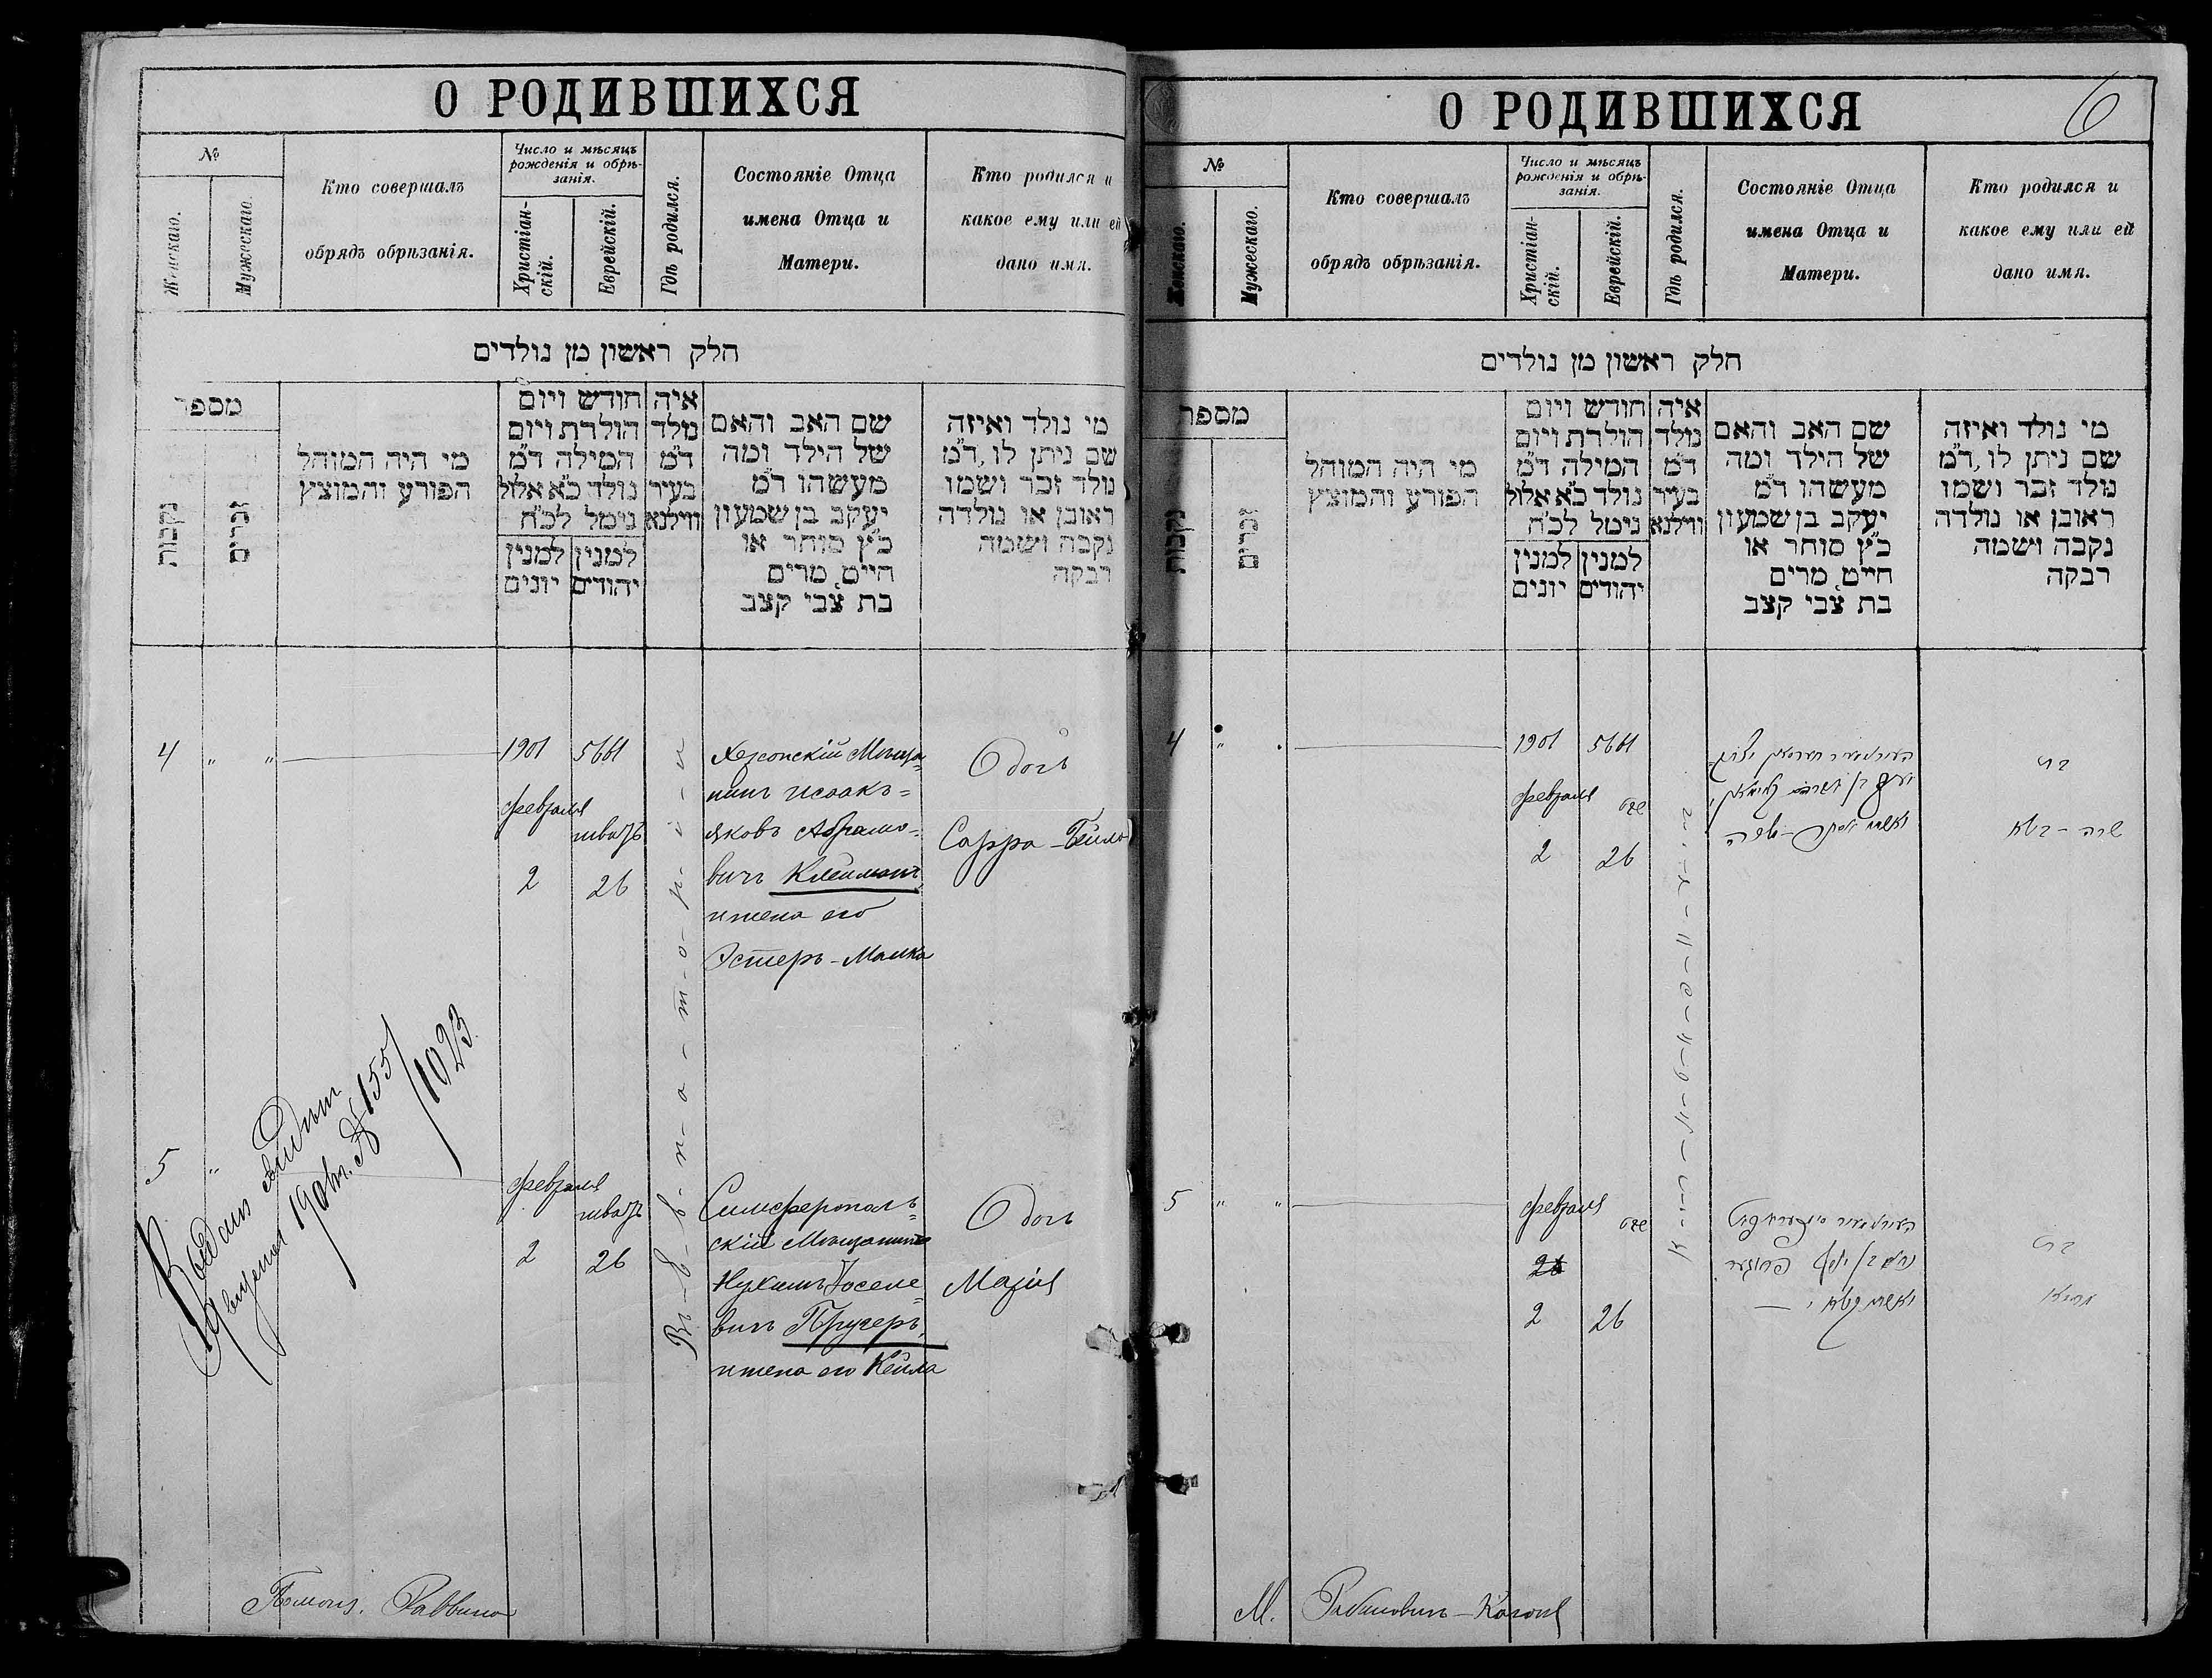 О РОДИВШИХСЯ
№
Женскаго.
Мужескаго.
Кто совершалъ
обрядъ обрѣзанія.
Число и мѣсяцъ
рожденія и обрѣ-
занія.
Христіан-
скій.
Еврейскій.
Гдѣ родился.
Состояніе Отца
имена Отца и
Матери.
Кто родился и
какое ему или ей
дано имя.
חלק ראשון מן נולדים
מספר
נקבות
זכרים
מי היה המוהל
הפורע והמוצץ
חודש ויום
הולדת ויום
המילה ד״מ
נולד כ״א אלול
נימל לכ״ח
למנין
יונים
למנין
יהודים
איה
נולד
ד״מ
בעיר
ווילנא
שם האב והאם
של הילד ומה
מעשהו ד״מ
יעקב בן שמעון
כ״ץ סוחר או
חייט, מרים
בת צבי קצב
מי נולד ואיזה
שם ניתן לו, ד״מ
נולד זכר ושמו
ראובן או נולדה
נקבה ושמה
רבקה
4 " "
1901
февраля
2
5661
шватъ
26
Въ Евпаторіи
Херсонскій Мѣща=
нинъ Исаакъ=
Яковъ Абрамо=
вичъ Клейманъ,
жена его
Эстеръ-Малка
Дочь
Сарра-Бейла
5 "
№ 155/1023.
февраля
2
шватъ
26
Симферополь=
скій Мѣщанинъ
Нухимъ Іоселе=
вичъ Пругеръ,
жена его Кейла
Дочь
Марія
Помощ. Раввина
О РОДИВШИХСЯ
6
№
Женскаго.
Мужескаго.
Кто совершалъ
обрядъ обрѣзанія.
Число и мѣсяцъ
рожденія и обрѣ-
занія.
Христіан-
скій.
Еврейскій.
Гдѣ родился.
Состояніе Отца
имена Отца и
Матери.
Кто родился и
какое ему или ей
дано имя.
חלק ראשון מן נולדים
מספר
נקבות
זכרים
מי היה המוהל
הפורע והמוצץ
חודש ויום
הולדת ויום
המילה ד״מ
נולד כ״א אלול
נימל לכ״ח
למנין
יונים
למנין
יהודים
איה
נולד
ד״מ
בעיר
ווילנא
שם האב והאם
של הילד ומה
מעשהו ד״מ
יעקב בן שמעון
כ״ץ סוחר או
חייט, מרים
בת צבי קצב
מי נולד ואיזה
שם ניתן לו, ד״מ
נולד זכר ושמו
ראובן או נולדה
נקבה ושמה
רבקה
4 "
1901
февраля
2
5661
שבט
26
בת
שרה - ביילא
5 " "
февраля
2
שבט
26
בת
מריא
М. Рабиновичъ-Когонъ